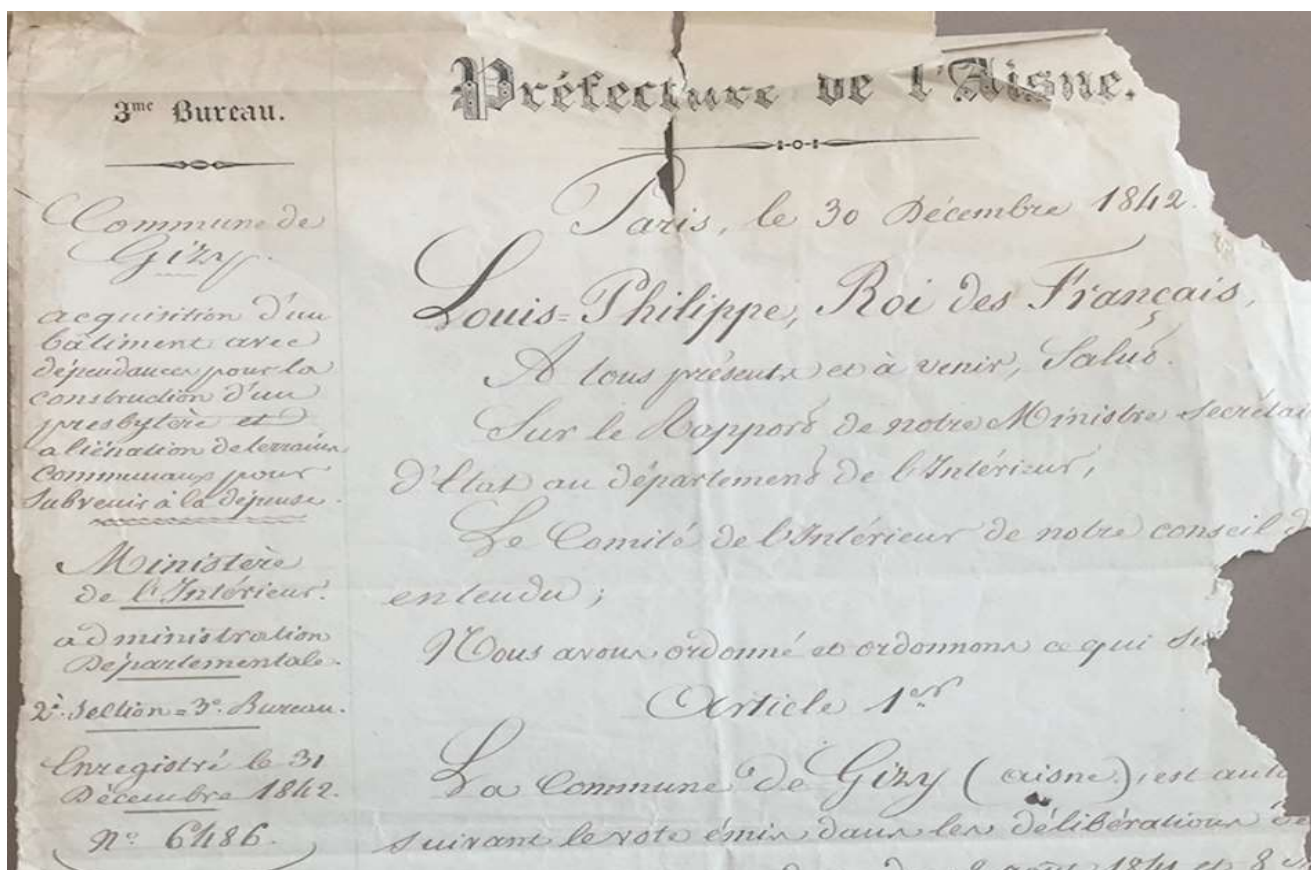 3me Bureau.
Commune de
Gizy.
acquisition d'un
bâtiment avec
dépendances pour la
construction d'un
presbytère et
aliénation de terrains
communaux pour
subvenir à la dépense.
Ministère
de l'Intérieur.
administration
Départementale.
2e. Section = 3e. Bureau.
Enregistré le 31
Décembre 1842.
No. 6486.
Préfecture de l'Aisne.
Paris, le 30 Décembre 1842.
Louis=Philippe, Roi des Français,
A tous présents et à venir, Salut.
Sur le Rapport de notre Ministre Secrétai
d'Etat au département de l'Intérieur,
Le Comité de l'Intérieur de notre conseil d
entendu;
Nous avons ordonné et ordonnons ce qui
Article 1er
La Commune de Gizy (aisne), est auto
suivant le vote émis dans les délibérations de
août 1841 et 8